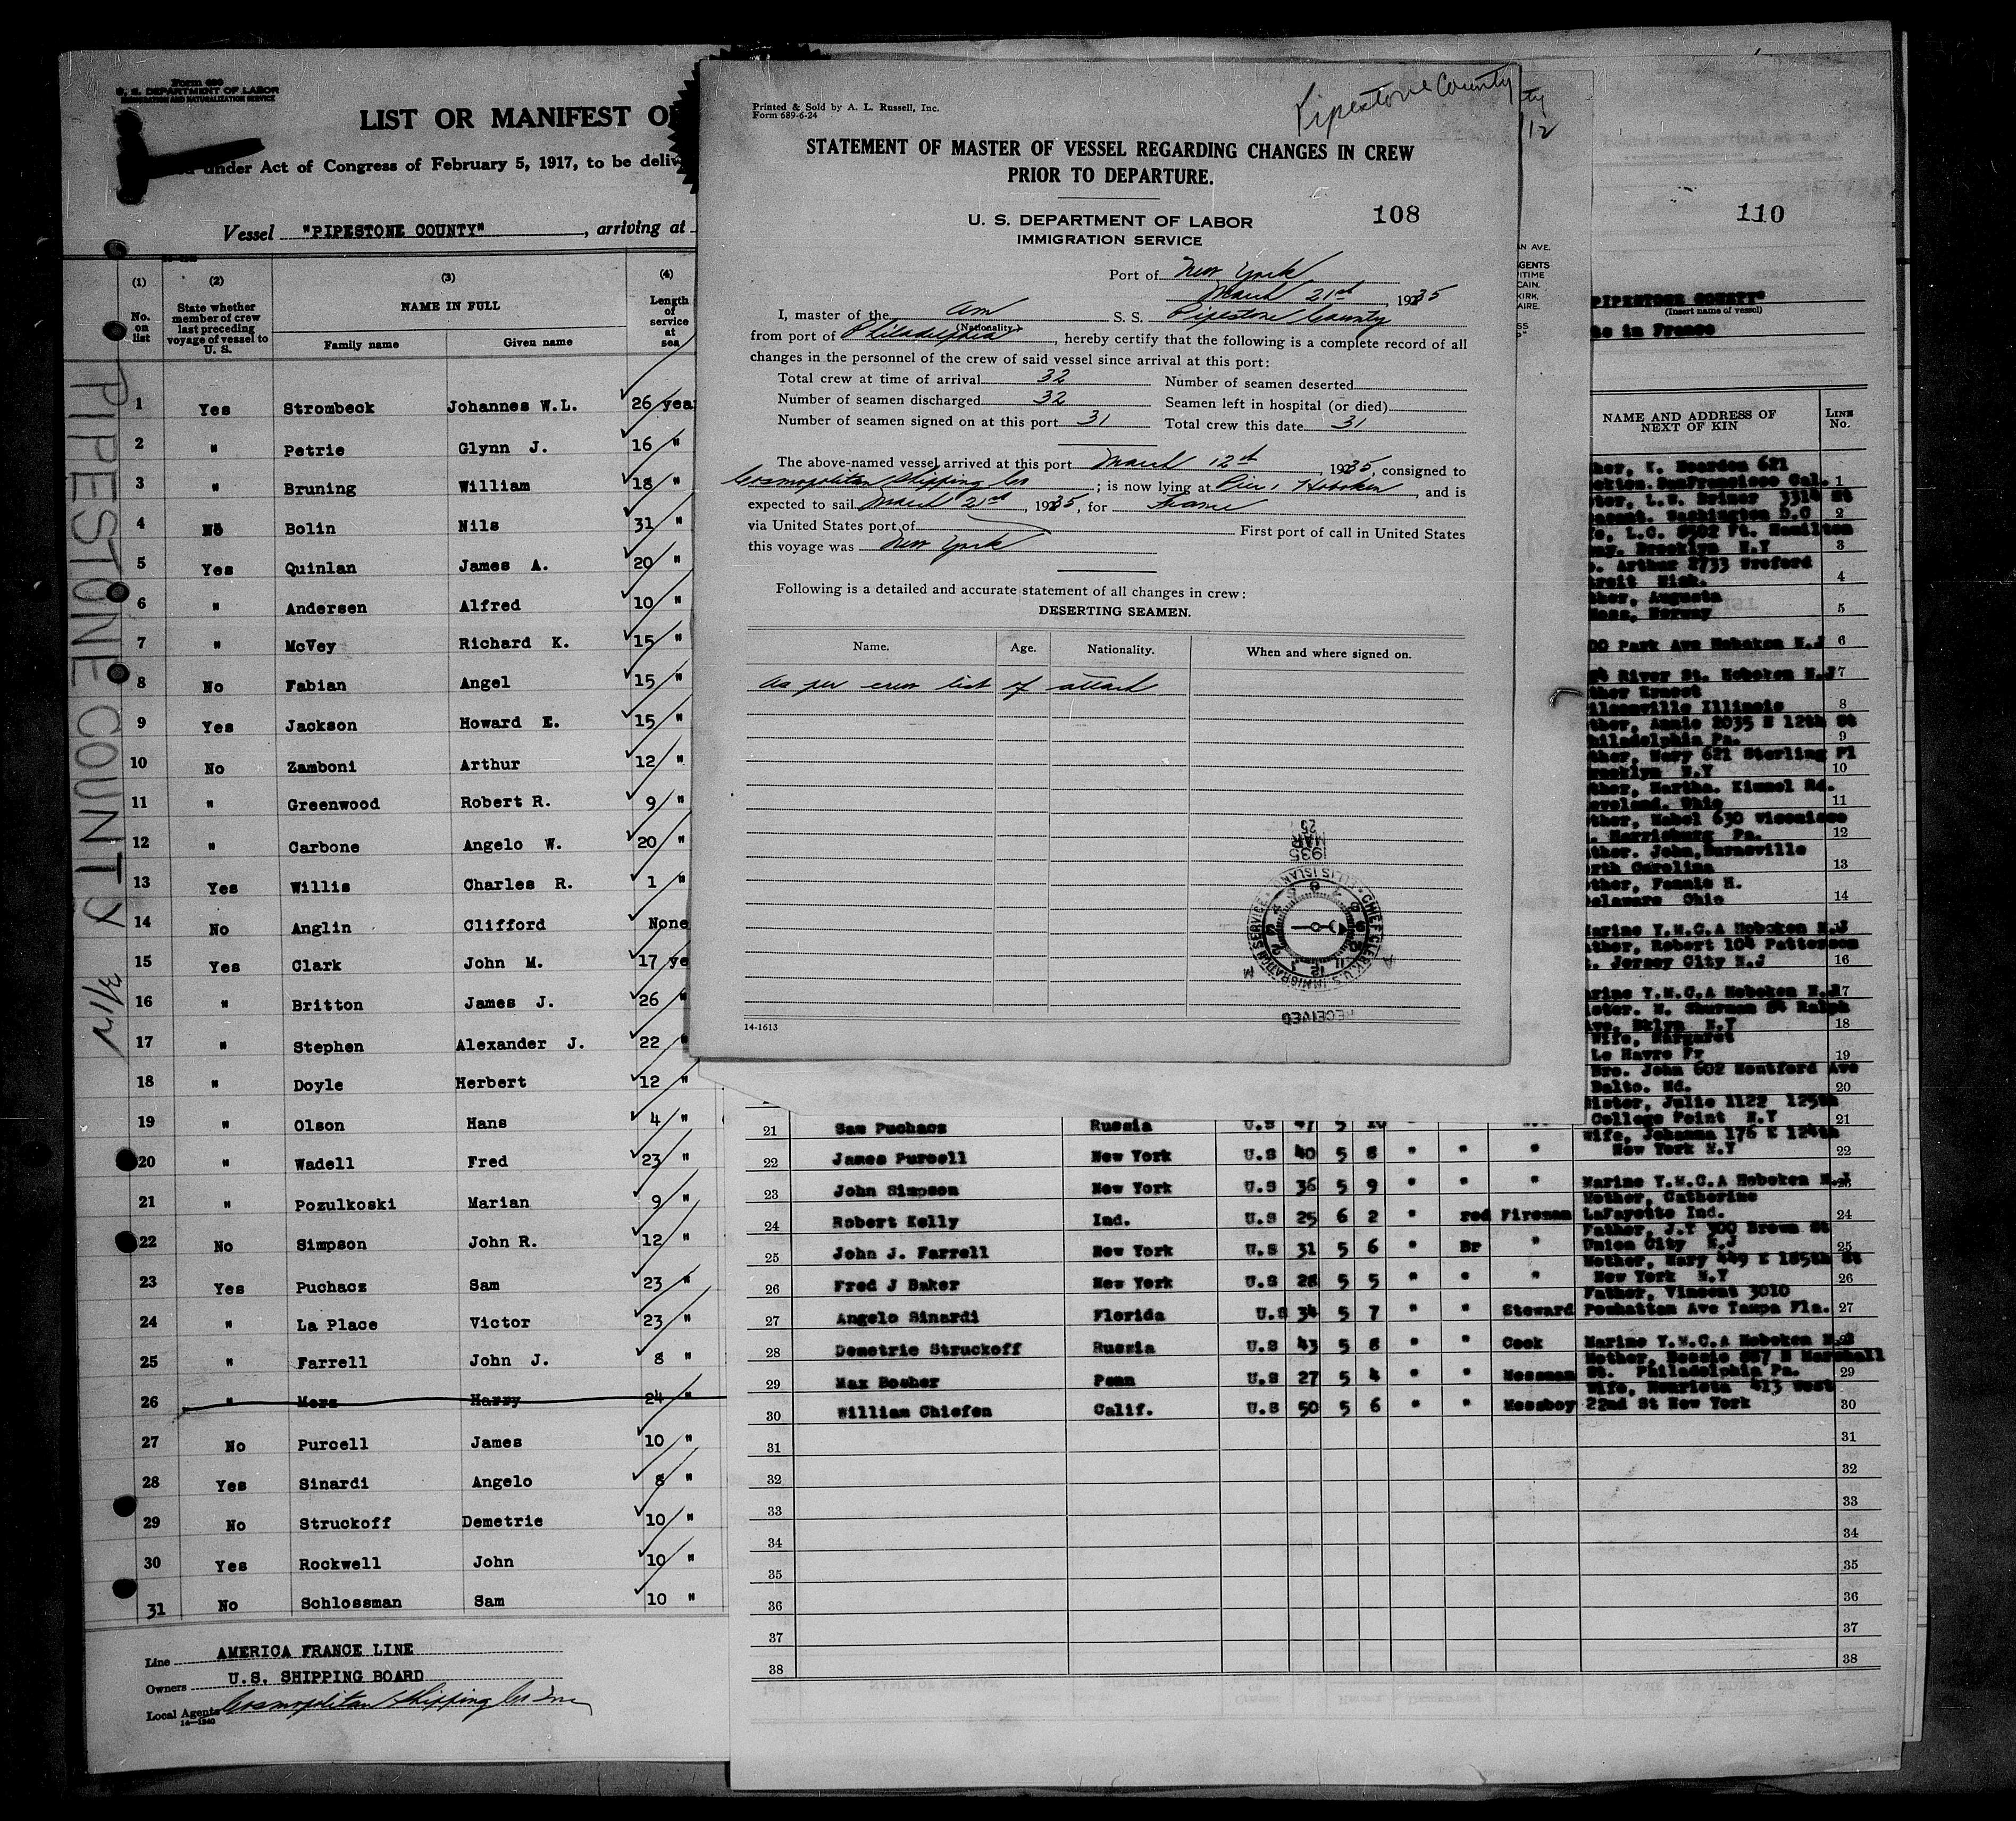 Form 680
U. S. DEPARTMENT OF LABOR
IMMIGRATION AND NATURALIZATION SERVICE
LIST OR MANIFEST O
under Act of Congress of February 5, 1917, to be deliv
Vessel "PIPESTONE COUNTY", arriving at
(1) (2) (3) (4)
No. on list
State whether member of crew last preceding voyage of vessel to U. S.
NAME IN FULL
Family name Given name
Length of service at sea
1 Yes Strombeck Johannes W.L. 26 yea
2 " Petrie Glynn J. 16 "
3 " Bruning William 18 "
4 No Bolin Nils 31 "
5 Yes Quinlan James A. 20 "
6 " Andersen Alfred 10 "
7 " McVey Richard K. 15 "
8 No Fabian Angel 15 "
9 Yes Jackson Howard E. 15 "
10 No Zamboni Arthur 12 "
11 " Greenwood Robert R. 9 "
12 " Carbone Angelo W. 20 "
13 Yes Willis Charles R. 1 "
14 No Anglin Clifford None
15 Yes Clark John M. 17 ye
16 " Britton James J. 26 "
17 " Stephen Alexander J. 22 "
18 " Doyle Herbert 12 "
19 " Olson Hans 4 "
20 " Wadell Fred 23 "
21 " Pozulkoski Marian 9 "
22 No Simpson John R. 12 "
23 Yes Puchacz Sam 23 "
24 " La Place Victor 23 "
25 " Farrell John J. 8 "
26 " Merz Harry 24 "
27 No Purcell James 10 "
28 Yes Sinardi Angelo 8 "
29 No Struckoff Demetrie 10 "
30 Yes Rockwell John 10 "
31 No Schlossman Sam 10 "
Line AMERICA FRANCE LINE
Owners U.S. SHIPPING BOARD
Local Agents Cosmopolitan Shipping Co Inc
14-1240
PIPESTONE COUNTY 3/12
Pipestone County
ty
/12
Printed & Sold by A. L. Russell, Inc.
Form 689-6-24
STATEMENT OF MASTER OF VESSEL REGARDING CHANGES IN CREW
PRIOR TO DEPARTURE.
U. S. DEPARTMENT OF LABOR
108
IMMIGRATION SERVICE
Port of New York
March 21st, 1935
I, master of the Am S. S. Pipestone County
(Nationality)
from port of Philadelphia, hereby certify that the following is a complete record of all
changes in the personnel of the crew of said vessel since arrival at this port:
Total crew at time of arrival 32 Number of seamen deserted
Number of seamen discharged 32 Seamen left in hospital (or died)
Number of seamen signed on at this port 31 Total crew this date 31
The above-named vessel arrived at this port March 12th, 1935, consigned to
Cosmopolitan Shipping Co; is now lying at Pier 1 Hoboken, and is
expected to sail March 21st, 1935, for France
via United States port of First port of call in United States
this voyage was New York
Following is a detailed and accurate statement of all changes in crew:
DESERTING SEAMEN.
Name. Age. Nationality. When and where signed on.
As per crew list of attach
MAR 25
1935
CHIEF CLERK U.S. IMMIGRATION SERVICE ELLIS ISLAN
RECEIVED
14-1613
N AVE.
GENTS
ITIME
CAIN.
KIRK,
AIRE.
110
PIPESTONE COUNTY"
(Insert name of vessel)
in France
NAME AND ADDRESS OF NEXT OF KIN
LINE No.
Reardon 621
SanFrancisco Cal. 1
ter, L.W. Briner 3314 St
Washington D.C 2
L.C. 8502 Ft. Hamilton
Brooklyn N.Y 3
Arthur 2733 Wreford
Mich. 4
Augusta
Moss, Norway 5
00 Park Ave Hoboken N.J 6
River St. Hoboken N.J 7
ther Ernest
Illinois 8
ther, Annie 2035 E 12th St
hiladelphia Pa. 9
ther, Mary 621 Sterling Pl
rooklyn N.Y 10
ther, Martha. Kimmel Rd.
eveland. Ohio 11
ther, Mabel 630
Harrisburg Pa. 12
ther. John, Burnsville
rth Carolina 13
ther, Fannie M.
Delaware Ohio 14
Marine Y.M.C.A Hoboken N.J
ather, Robert 104 Patterson
Jersey City N.J 16
arine Y.M.C.A Hoboken N.J 17
ister. M. Sherman St Ralph
Ave. Bklyn N.Y 18
Wife, Margaret
Le Havre Fr 19
Bro. John 602 Montford Ave
Balto. Md. 20
Sister, Julie 1122 125th
21 Sam Puchacz Russia U.S 47 5 10 " College Point N.Y 21
Wife, Johanna 176 E 124th
22 James Purcell New York U.S 40 5 8 " " " New York N.Y 22
23 John Simpson New York U.S 36 5 9 " " " Marine Y.M.C.A Hoboken N.J 23
Mother, Catherine
24 Robert Kelly Ind. U.S 25 6 2 " red Fireman LaFayette Ind. 24
Father, J.T 300 Brown St
25 John J. Farrell New York U.S 31 5 6 " Br " Union City N.J 25
Mother, Mary 449 E 185th St
26 Fred J Baker New York U.S 28 5 5 " " " New York N.Y 26
Father, Vincent 3010
27 Angelo Sinardi Florida U.S 34 5 7 " " Steward Powhattan Ave Tampa Fla. 27
28 Demetrie Struckoff Russia U.S 43 5 8 " " Cook Marine Y.M.C.A Hoboken N.J
Mother, Bessie 857 N Marshall
29 Max Bosher Penn U.S 27 5 4 " " Messman St. Philadelphia Pa. 29
Wife, Henrieta 413 West
30 William Chiefen Calif. U.S 50 5 6 " " Messboy 22nd St New York 30
31 31
32 32
33 33
34 34
35 35
36 36
37 37
38 38